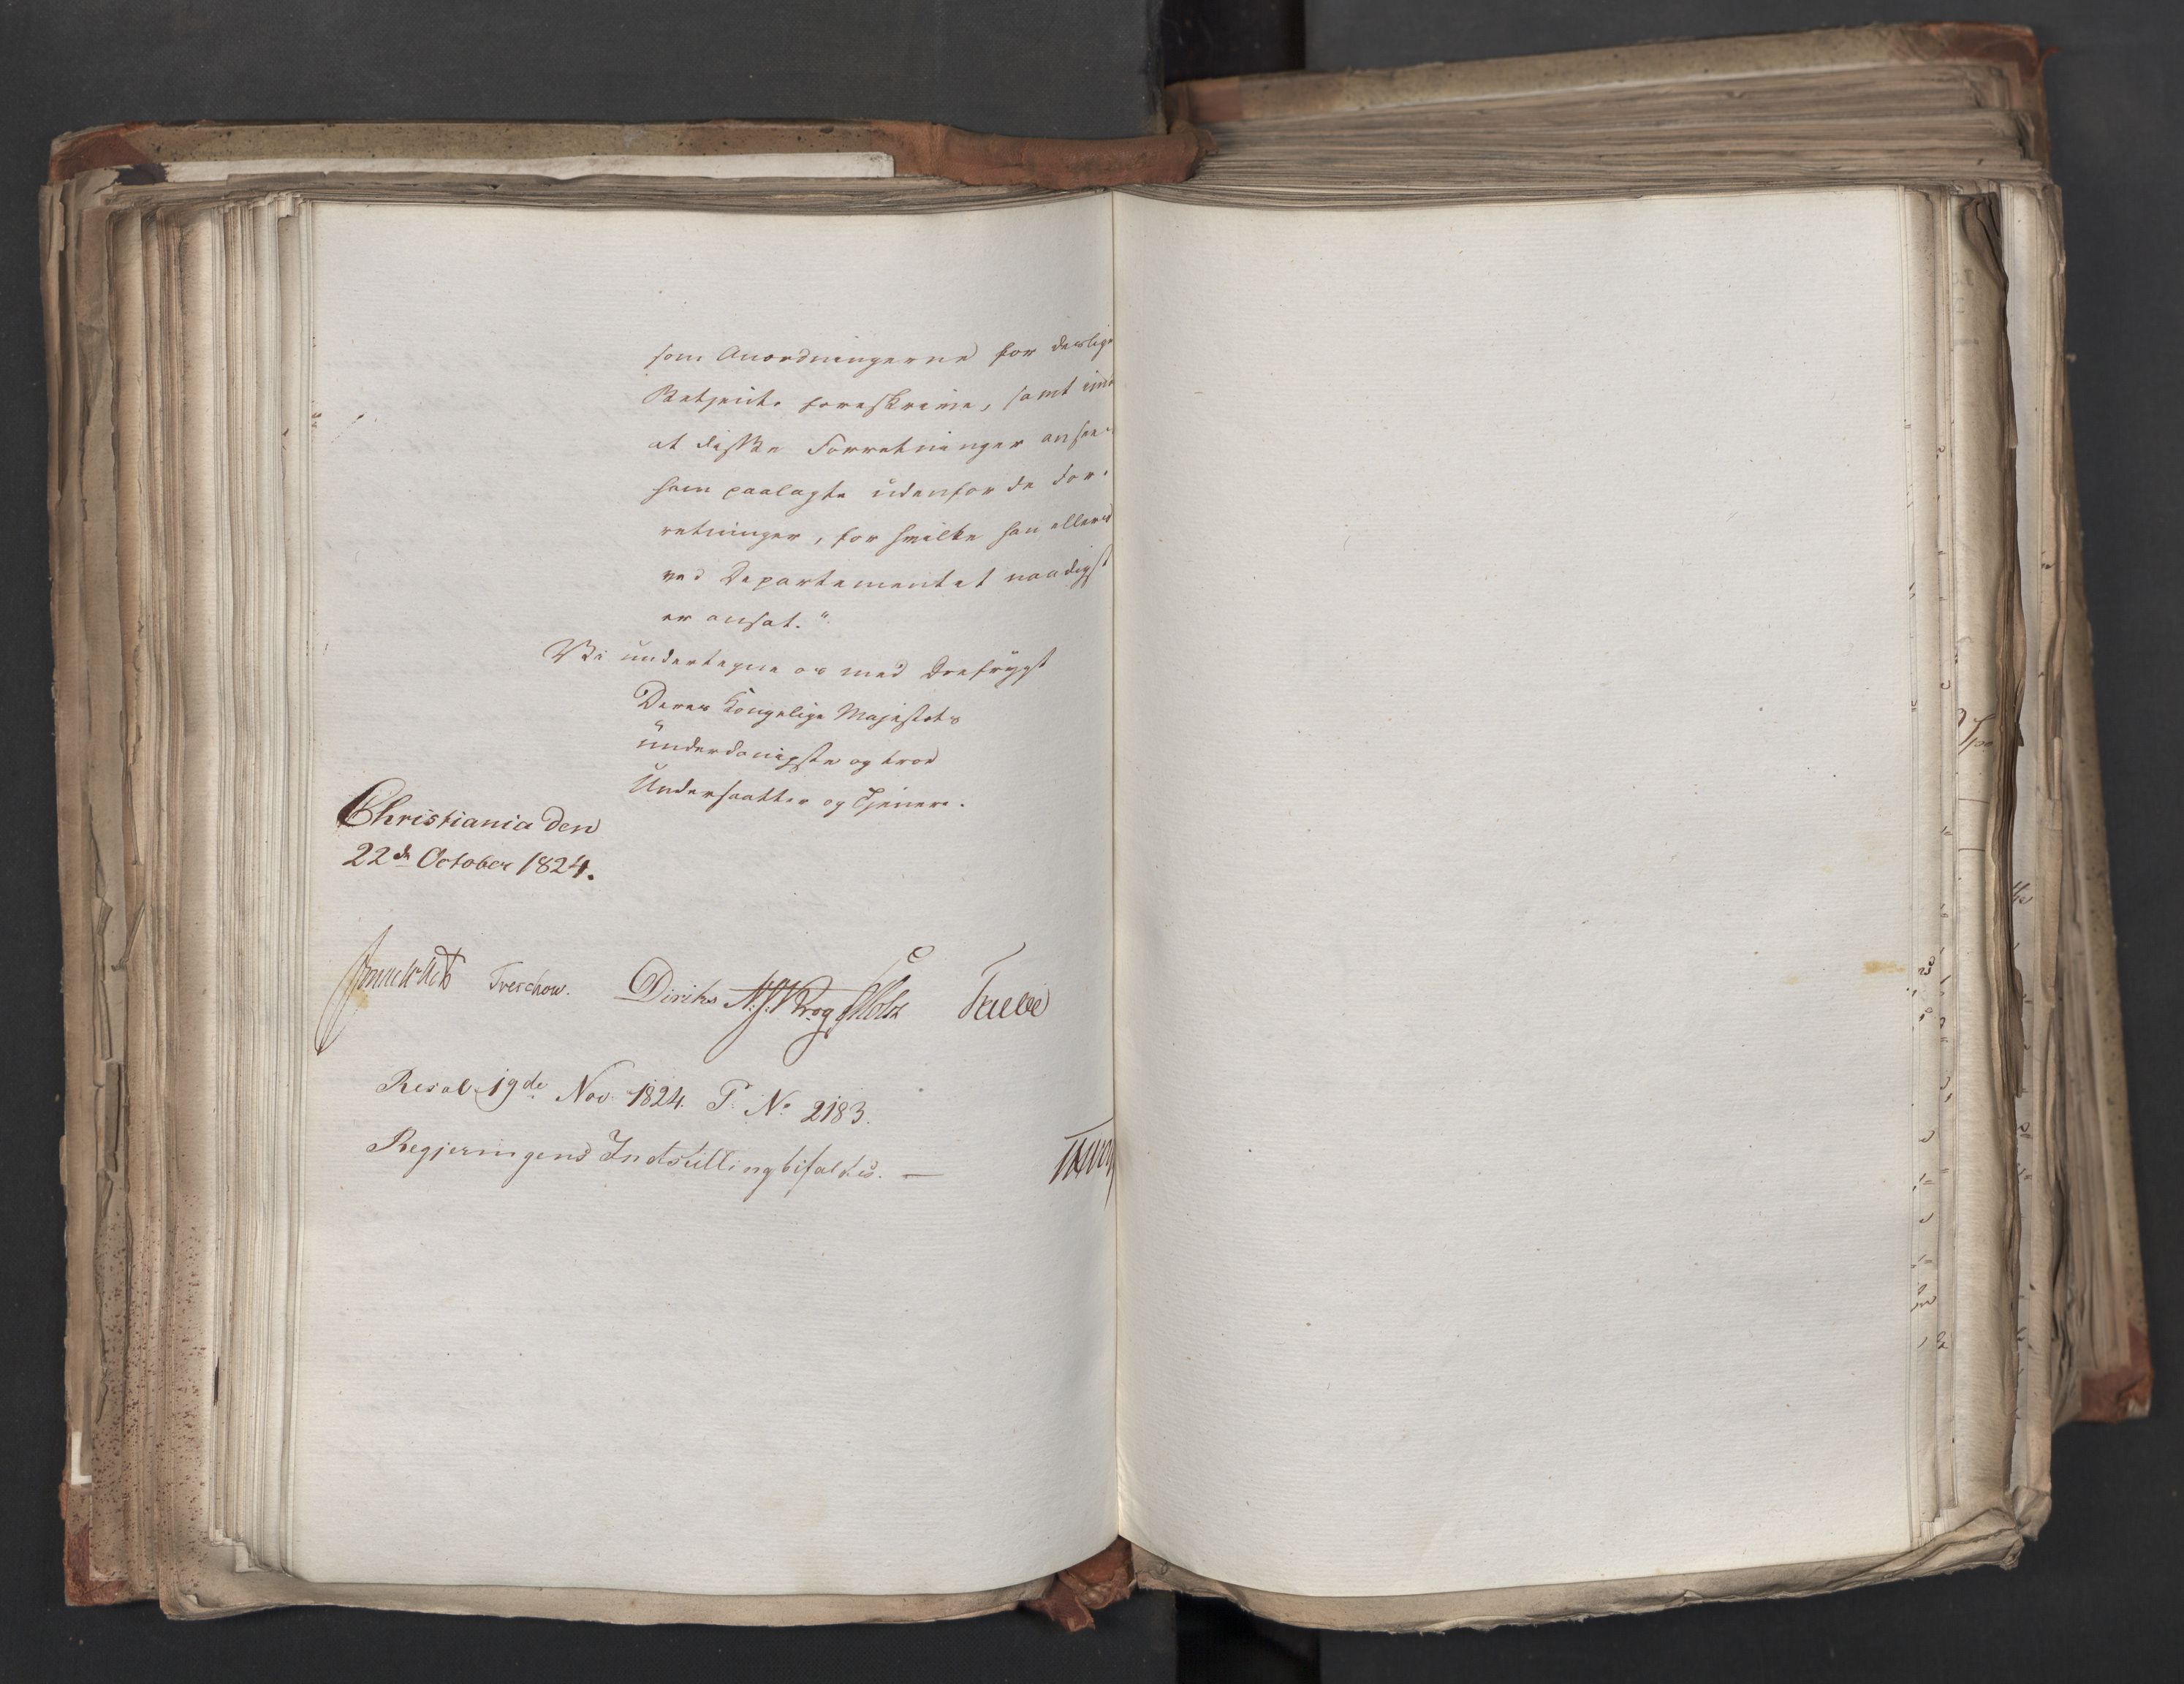 som Anordningerne for deslige
Betjente foreskrive, samt
at disse Forretninger ansees
som paalagte udenfor de For-
retninger, for hvilke han allerede
ved Departementet naadigst
er ansat."
Vi undertegne os med Ærefrygt
Deres Kongelige Majestæts
underdanigste og troe
Undersaatter og Tjenere.
Christiania den
22de October 1824.
Sommerhielm Treschow. Diriks N. J. Krog Holst Fasting
Resol. 19de Nov: 1824. P. No 2183.
Regjeringens Indstilling bifaldes. —